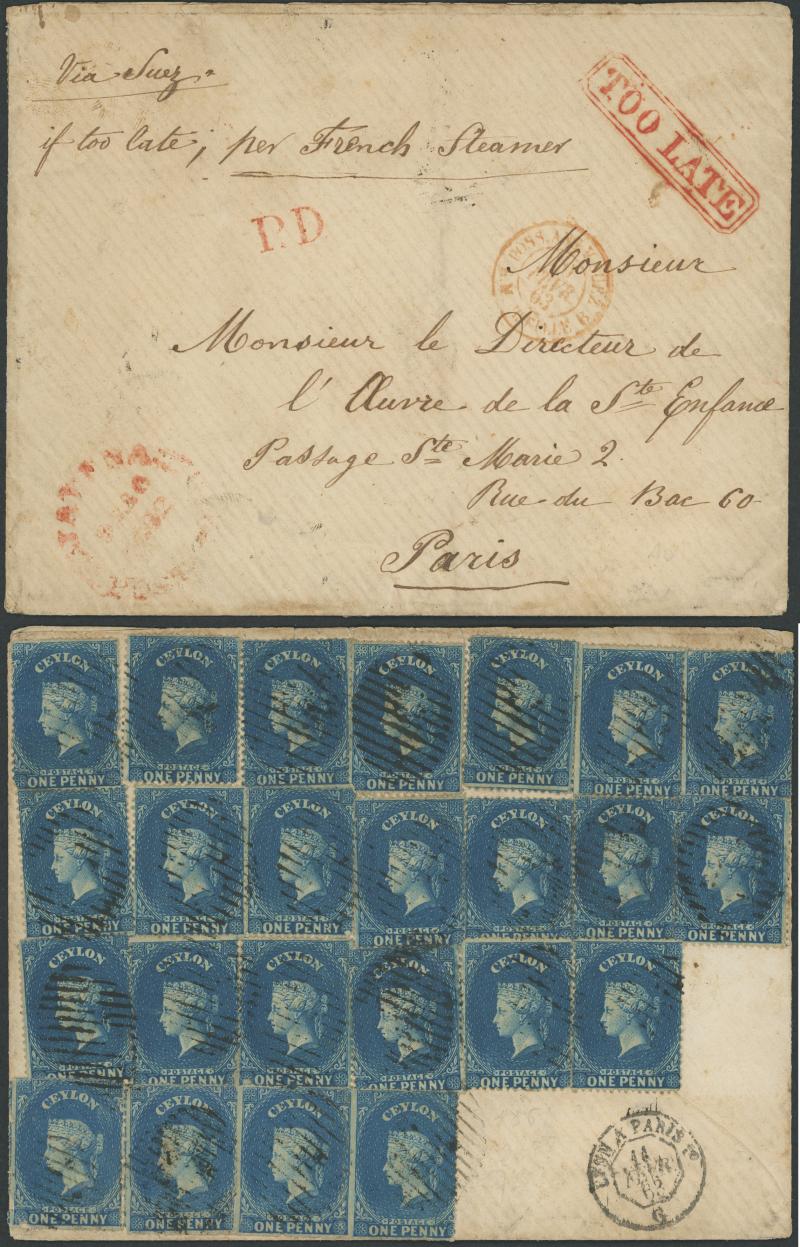 Via Suez.
TOO LATE
if too late; per French Steamer
P.D.
Monsieur
Monsieur le Directeur de
l'Œuvre de la Ste Enfance
Passage Ste Marie 2
Rue du Bac 60
Paris
POST
CEYLON
POSTAGE
ONE PENNY
CEYLON
POSTAGE
ONE PENNY
CEYLON
POSTAGE
ONE PENNY
CEYLON
POSTAGE
ONE PENNY
CEYLON
POSTAGE
ONE PENNY
CEYLON
POSTAGE
ONE PENNY
CEYLON
POSTAGE
ONE PENNY
CEYLON
POSTAGE
ONE PENNY
CEYLON
POSTAGE
ONE PENNY
CEYLON
POSTAGE
ONE PENNY
CEYLON
POSTAGE
ONE PENNY
CEYLON
POSTAGE
ONE PENNY
CEYLON
POSTAGE
ONE PENNY
CEYLON
POSTAGE
ONE PENNY
CEYLON
POSTAGE
ONE PENNY
CEYLON
POSTAGE
ONE PENNY
CEYLON
POSTAGE
ONE PENNY
CEYLON
POSTAGE
ONE PENNY
CEYLON
POSTAGE
ONE PENNY
CEYLON
POSTAGE
ONE PENNY
CEYLON
POSTAGE
ONE PENNY
CEYLON
POSTAGE
ONE PENNY
CEYLON
POSTAGE
ONE PENNY
CEYLON
POSTAGE
ONE PENNY
LYON A PARIS